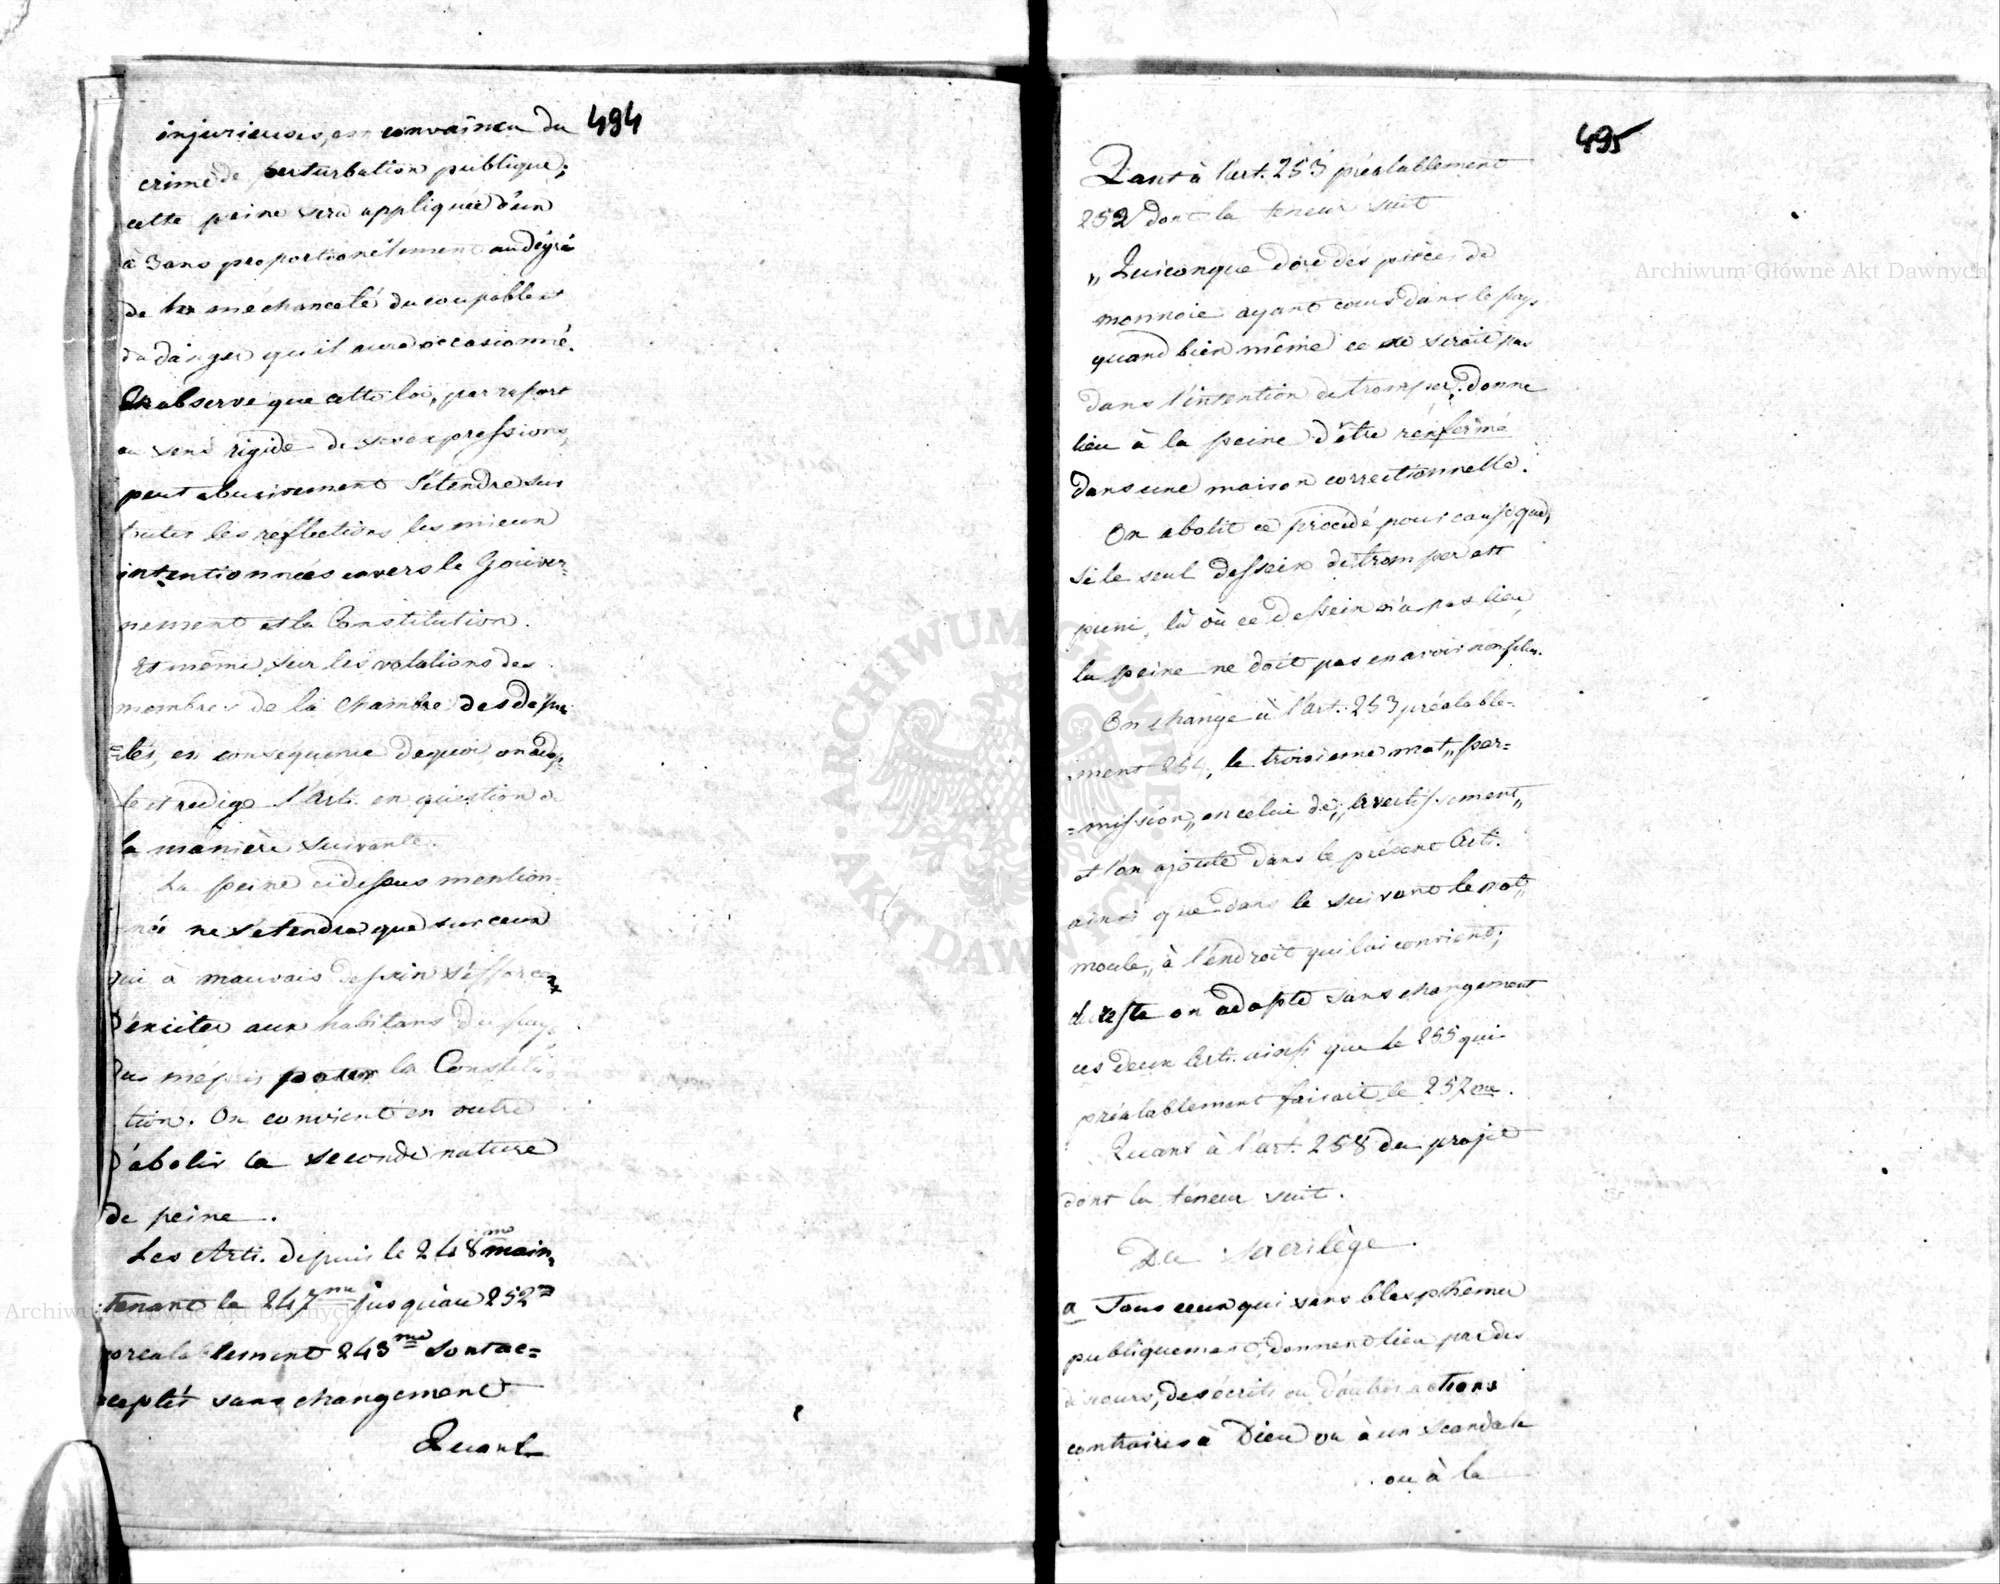 494
injurieuses, est convaincu du
crime de perturbation publique;
cette peine sera appliquée d'un
à 3 ans proportionélement au dégré
de la méchanceté du coupable et
du danger qu'il aura occasionné.
On observe que cette loi, par raport
au sens rigide de ses expressions,
peut abusivement s'étendre sur
toutes les reflections les mieux
intentionnées envers le Gouver=
nement et la Constitution.
Et même sur les votations des
membres de la Chambre des dépu
=tés, en consequence de quoi on adop
te et redige l'Art. en question de
la manière suivante.
La peine cidessus mention=
née ne s'étendra que sur ceux
qui à mauvais dessein s'efforcent
d'exciter aux habitans du pays
du mépris pour la Constitu
tion. On convient en outre
d'abolir la seconde nature
de peine.
Les Arts. depuis le 248me main
tenant le 247me jusqu'au 252
préalablement 243me sont ac=
ceptés sans changement
Quant
495
Quant à l'art. 253 préalablement
252 dont la teneur suit
„ Quiconque dore des pièces de
monnoie ayant cours dans le pays,
quand bien même ce ne serait pas
dans l'intention de tromper, donne
lieu à la peine d'être renfermé
dans une maison correctionnelle.
On abolit ce procédé, pour cause, que
si le seul dessein de tromper est
puni, là où ce dessein n'a pas lieu,
la peine ne doit pas en avoir non plus.
On change à l'Art. 253 préalable=
ment 254, le troisieme mot „ per=
=mission „ en celui de „ avertissement „
et l'on ajoute dans le présent Art.
ainsi que dans le suivant le mot „
moule „ à l'endroit qui lui convient;
du reste on adopte sans changement
ces deux Arts. ainsi que le 255 qui
préalablement faisait le 257me.
Quant à l'art. 258 du projet
dont la teneur suit.
Du Sacrilège.
a Tous ceux qui sans blasphêmer
publiquement, donnent lieu par des
discours, des écrits ou d'autres actions
contraires à Dieu ou à un scandale
ou à la
Archiwum Główne Akt Dawnych
Archiwum Główne Akt Dawnych
ARCHIWUM GŁÓWNE AKT DAWNYCH